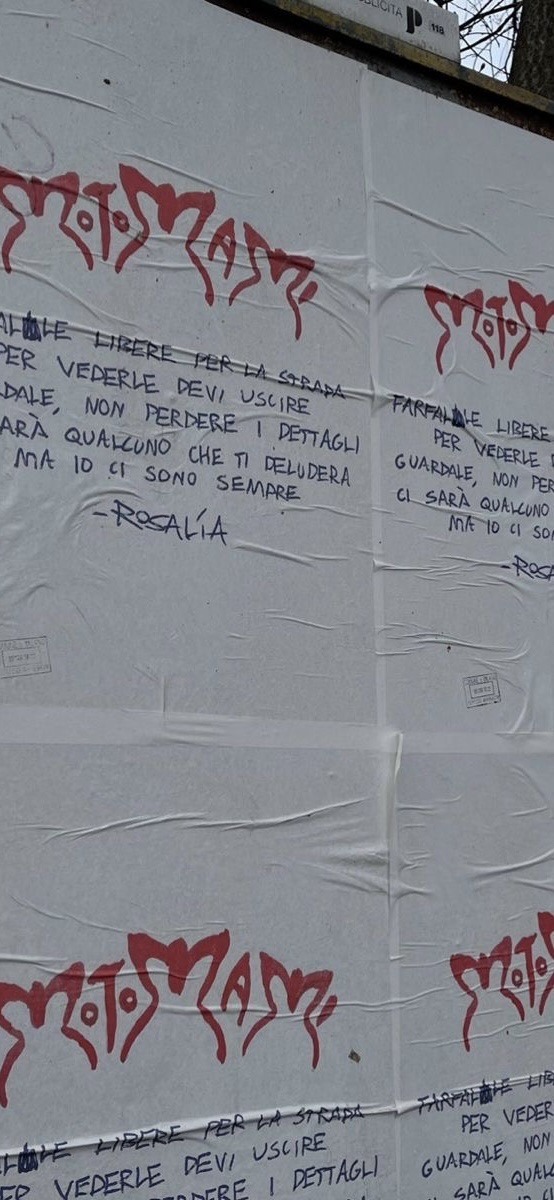 PUBBLICITÀ P 118
MOTOMAMI
FARFALLE LIBERE PER LA STRADA
PER VEDERLE DEVI USCIRE
GUARDALE, NON PERDERE I DETTAGLI
CI SARÀ QUALCUNO CHE TI DELUDERA
MA IO CI SONO SEMPRE
-ROSALÍA
MOTOM
FARFALLE LIBERE
PER VEDERLE D
GUARDALE, NON PER
CI SARÀ QUALCUNO
MA IO CI SON
-ROSA
MOTOMAMI
LLE LIBERE PER LA STRADA
ER VEDERLE DEVI USCIRE
N PERDERE I DETTAGLI
MOTO
FARFALLE LIB
PER VEDER
GUARDALE, NON
SARÀ QUALC